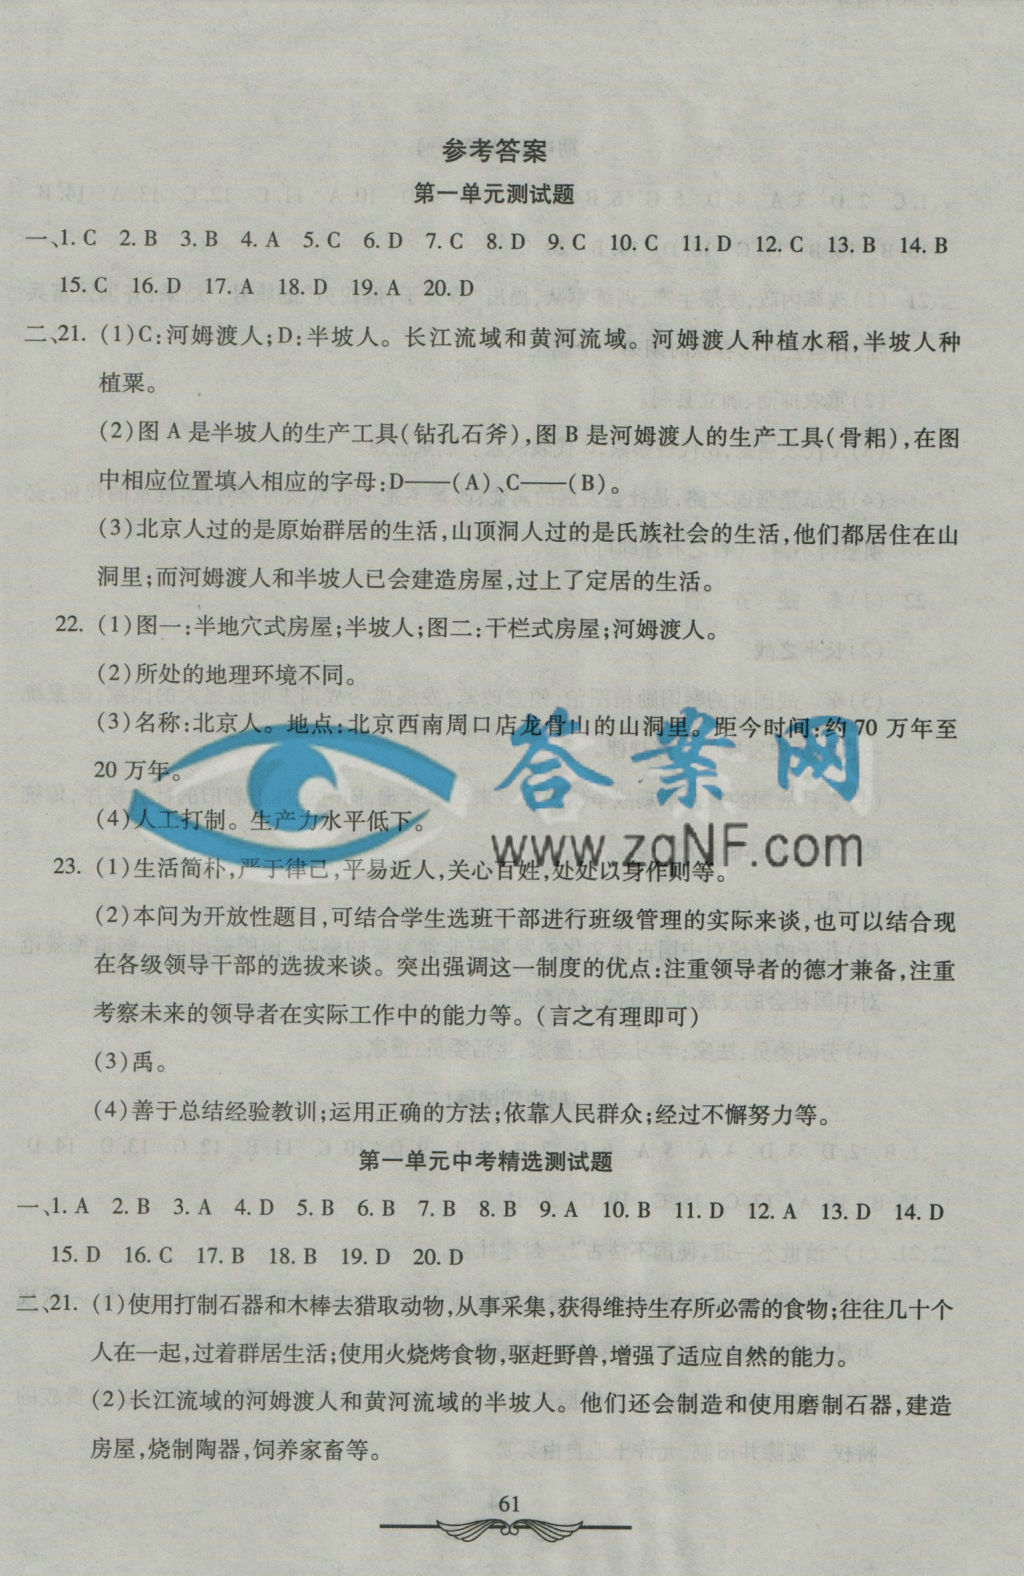 参考答案
第一单元测试题
一、1. C 2. B 3. B 4. A 5. C 6. D 7. C 8. D 9. C 10. C 11. D 12. C 13. B 14. B
15. C 16. D 17. A 18. D 19. A 20. D
二、21. (1)C:河姆渡人;D:半坡人。长江流域和黄河流域。河姆渡人种植水稻,半坡人种
植粟。
(2)图 A 是半坡人的生产工具(钻孔石斧),图 B 是河姆渡人的生产工具(骨耜),在图
中相应位置填入相应的字母:D——(A)、C——(B)。
(3)北京人过的是原始群居的生活,山顶洞人过的是氏族社会的生活,他们都居住在山
洞里;而河姆渡人和半坡人已会建造房屋,过上了定居的生活。
22. (1)图一:半地穴式房屋;半坡人;图二:干栏式房屋;河姆渡人。
(2)所处的地理环境不同。
(3)名称:北京人。地点:北京西南周口店龙骨山的山洞里。距今时间:约 70 万年至
20 万年。
(4)人工打制。生产力水平低下。
答案网
www.zqNF.com
23. (1)生活简朴,严于律己,平易近人,关心百姓,处处以身作则等。
(2)本问为开放性题目,可结合学生选班干部进行班级管理的实际来谈,也可以结合现
在各级领导干部的选拔来谈。突出强调这一制度的优点:注重领导者的德才兼备,注重
考察未来的领导者在实际工作中的能力等。(言之有理即可)
(3)禹。
(4)善于总结经验教训;运用正确的方法;依靠人民群众;经过不懈努力等。
第一单元中考精选测试题
一、1. A 2. B 3. A 4. D 5. B 6. B 7. B 8. B 9. A 10. B 11. D 12. A 13. D 14. D
15. D 16. C 17. B 18. B 19. D 20. D
二、21. (1)使用打制石器和木棒去猎取动物,从事采集,获得维持生存所必需的食物;往往几十个
人在一起,过着群居生活;使用火烧烤食物,驱赶野兽,增强了适应自然的能力。
(2)长江流域的河姆渡人和黄河流域的半坡人。他们还会制造和使用磨制石器,建造
房屋,烧制陶器,饲养家畜等。
61